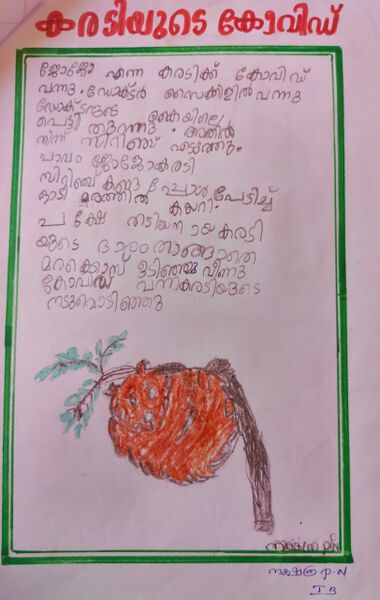 കരടിയുടെ കോവിഡ്
ജോജോ എന്ന കരടിക്ക് കോവിഡ്
വന്നു. ഡോക്ടർ സൈക്കിളിൽ വന്നു
ഡോക്ടറുടെ
പെട്ടി തുറന്നു. അതിൽ
നിന്ന് സിറിഞ്ച് എടുത്തു.
പാവം ജോജോകരടി
സിറിഞ്ച് കണ്ടപ്പോൾ പേടിച്ച്
ഓടി മരത്തിൽ കയറി.
പക്ഷേ തടിയനായ കരടി
യുടെ ഭാരം താങ്ങാതെ
മരക്കൊമ്പ് ഒടിഞ്ഞു വീണു
കോവിഡ് വന്നകരടിയുടെ
നടുവൊടിഞ്ഞു
നക്ഷത്ര P.N
I B